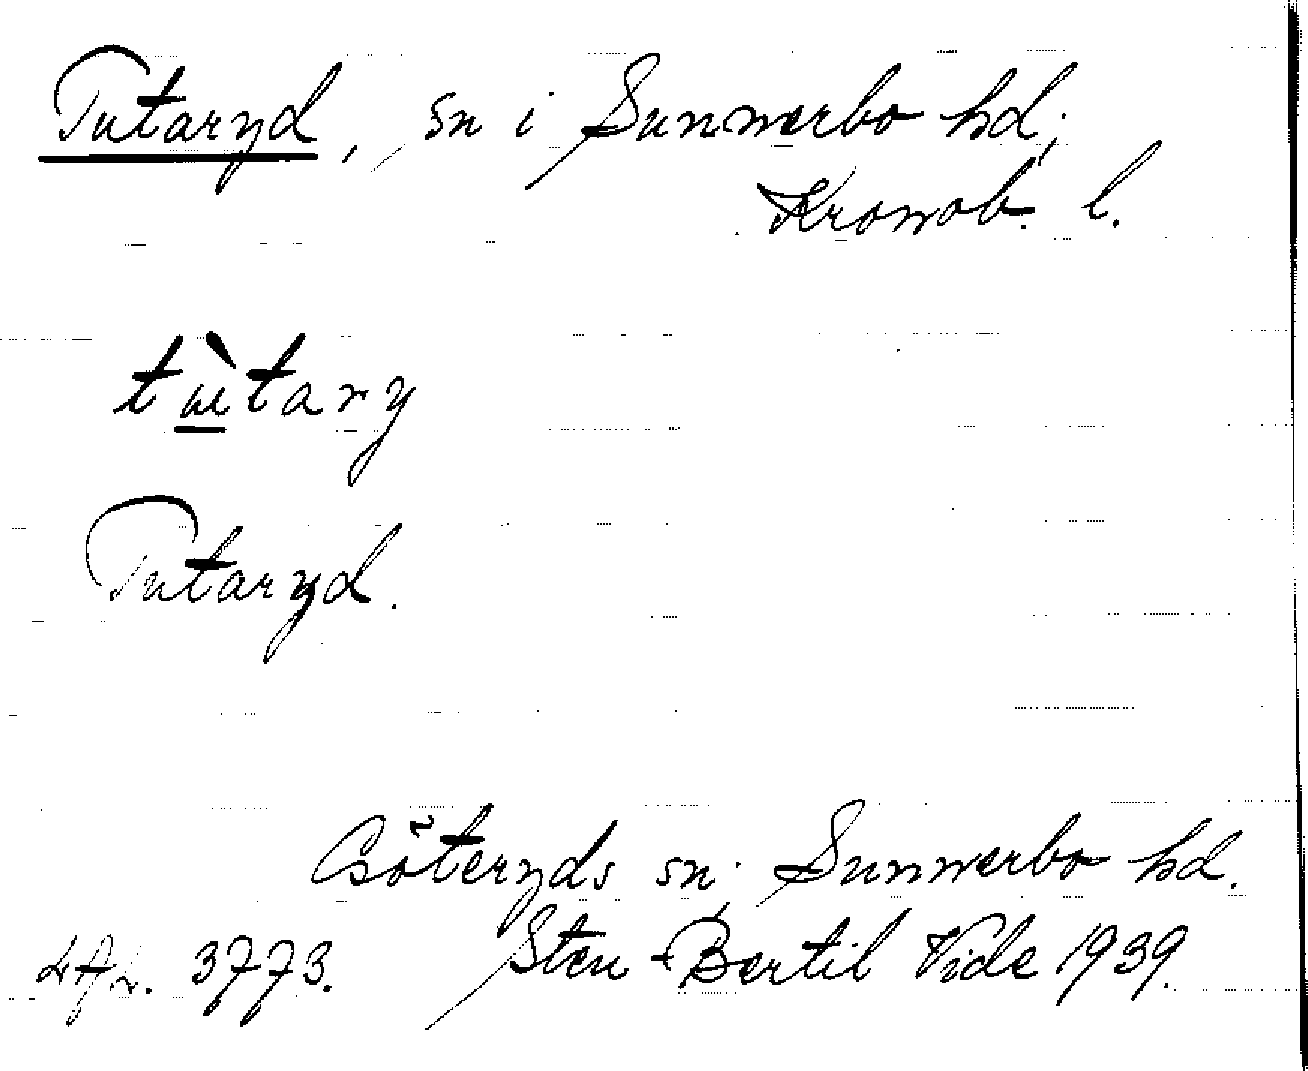 Tutaryd, sn i Sunnerbo hd;
Kronob. l.
tùtary
Tutaryd.
Göteryds sn; Sunnerbo hd.
3773. Sten-Bertil Vide 1939.